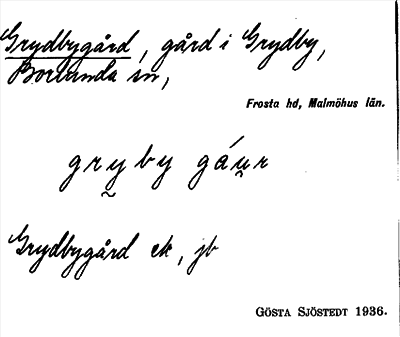 Grydbygård, gård i Grydby,
Borlunda sn,
Frosta hd, Malmöhus län.
gry̰by gáṵr
Grydbygård ek, jb
GÖSTA SJÖSTEDT 1936.